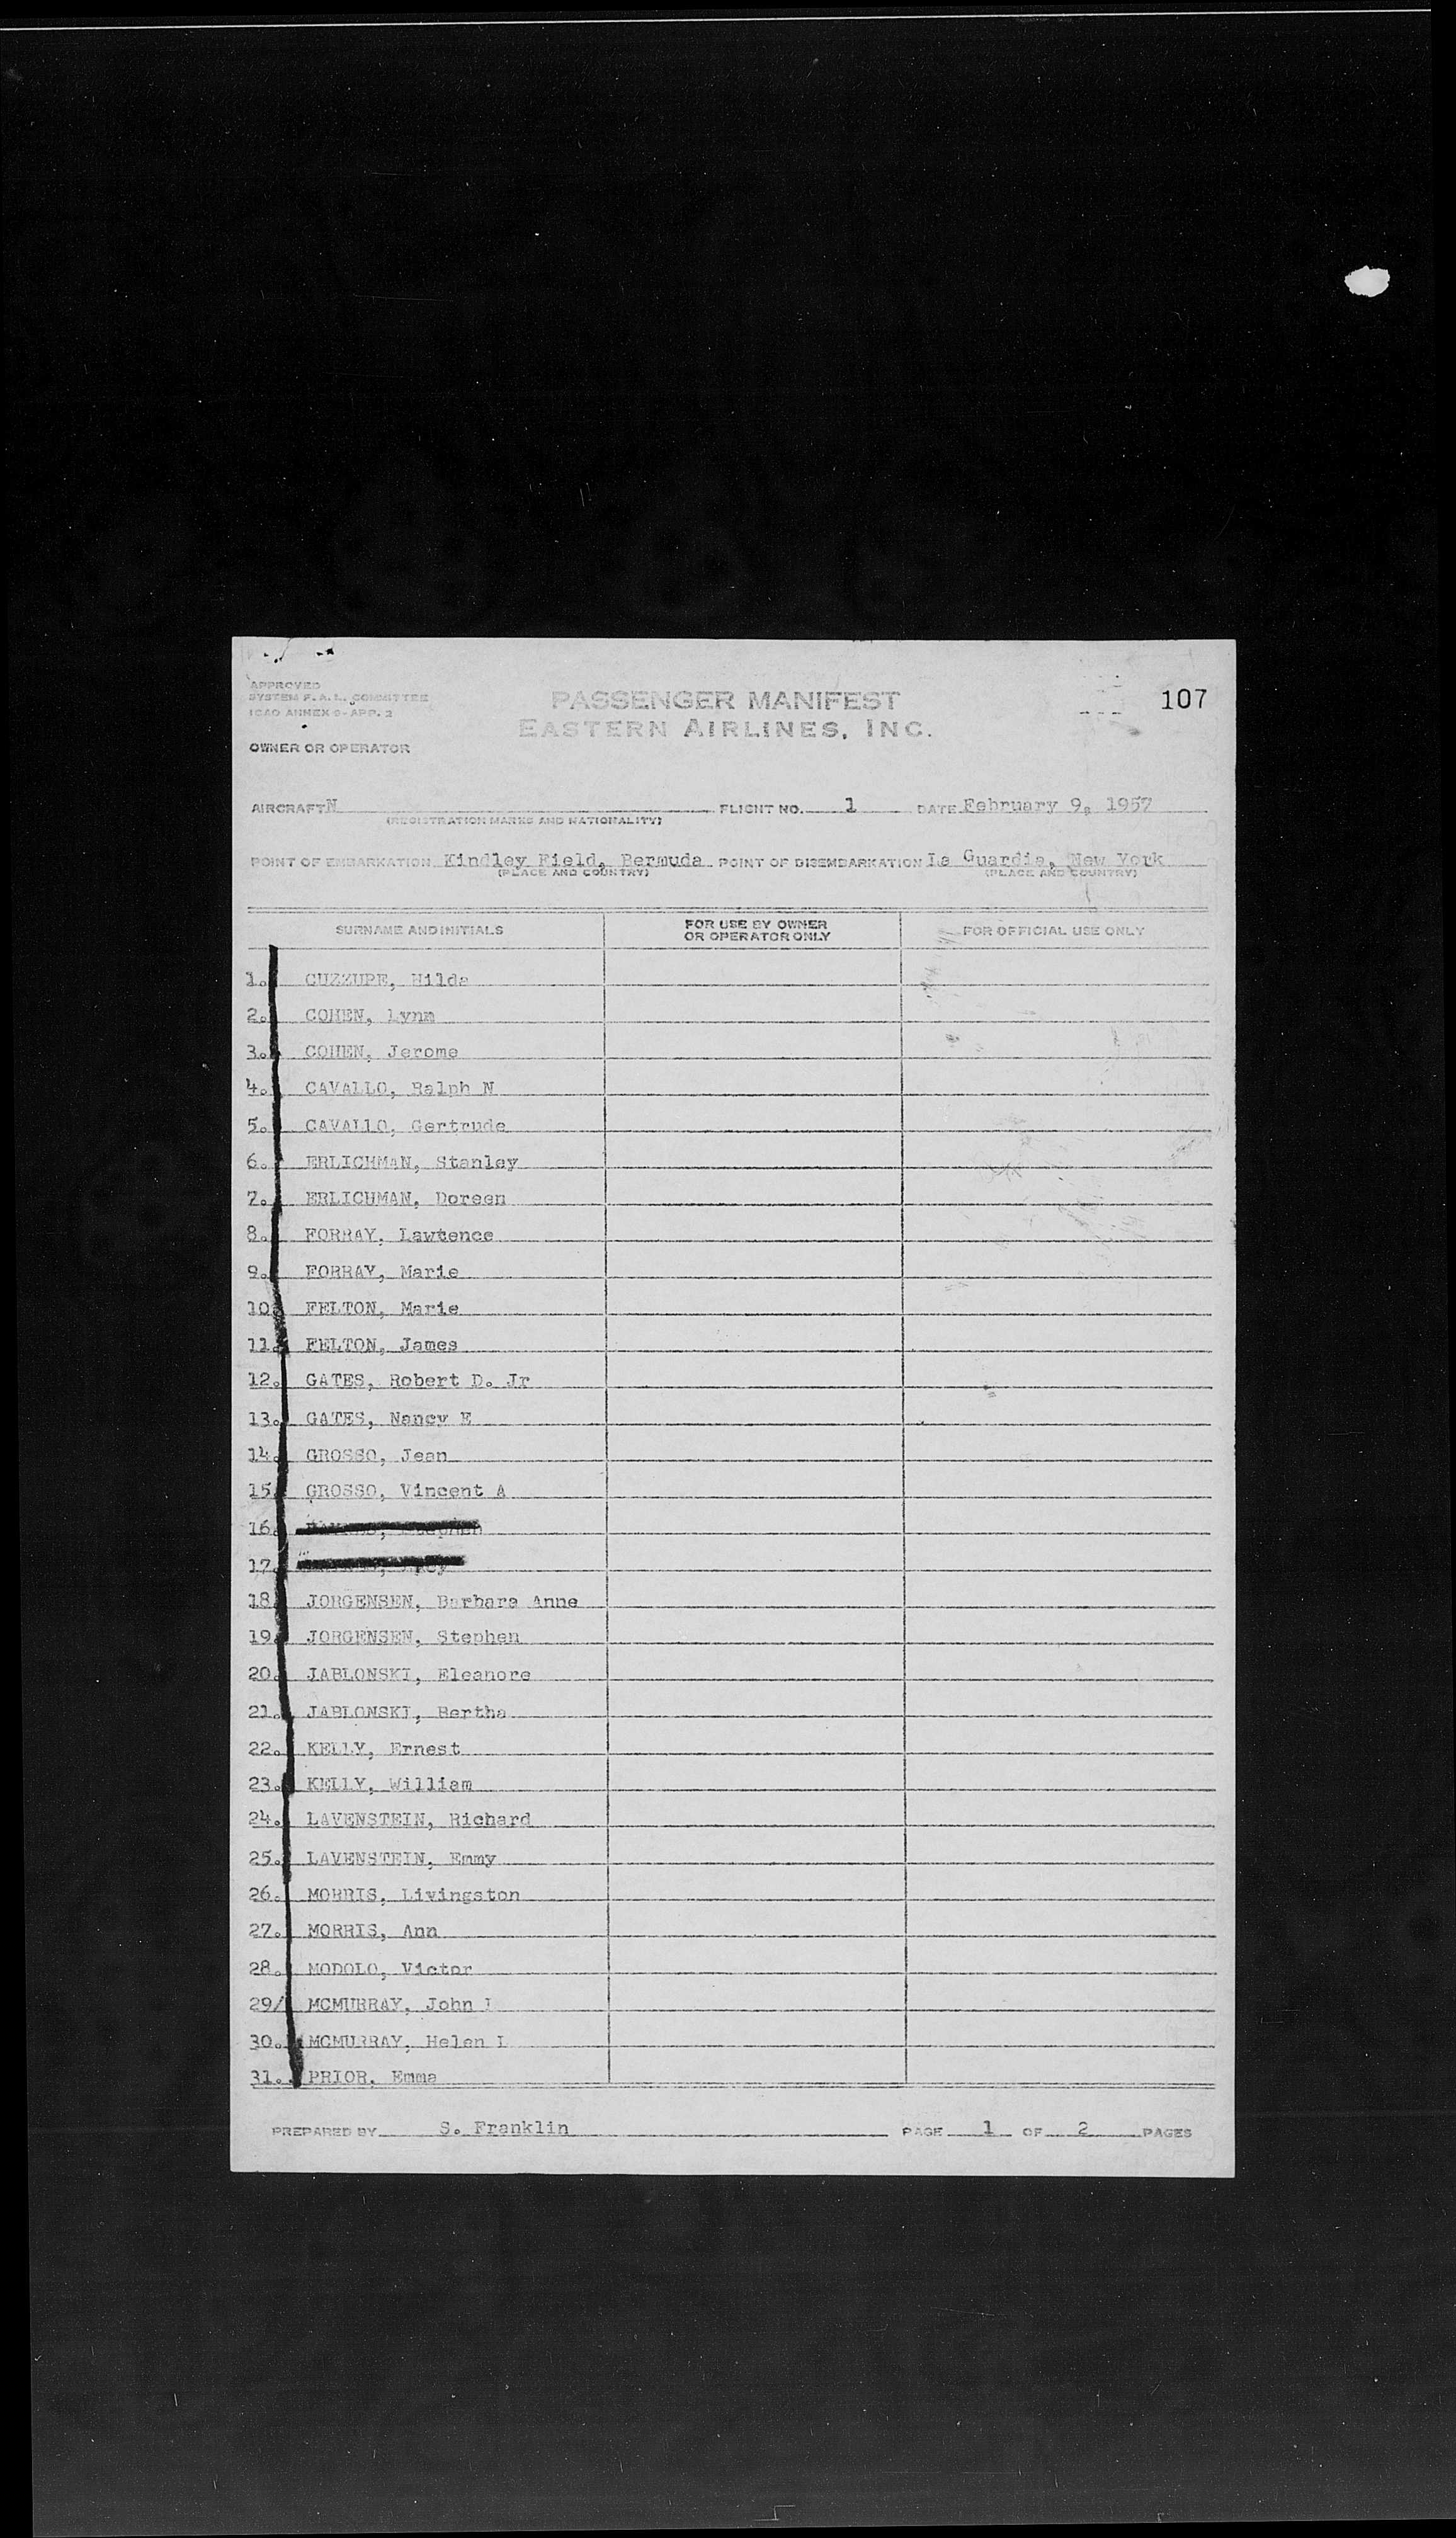 APPROVED
SYSTEM F. A. L. COMMITTEE
ICAO ANNEX 9-APP. 2
PASSENGER MANIFEST
107
EASTERN AIRLINES, INC.
OWNER OR OPERATOR
AIRCRAFT N FLIGHT NO. 1 DATE February 9, 1957
(REGISTRATION MARKS AND NATIONALITY)
POINT OF EMBARKATION Kindley Field, Bermuda POINT OF DISEMBARKATION La Guardia, New York
(PLACE AND COUNTRY) (PLACE AND COUNTRY)
SURNAME AND INITIALS FOR USE BY OWNER OR OPERATOR ONLY FOR OFFICIAL USE ONLY
1. CUZZUPE, Hilda
2. COHEN, Lynn
3. COHEN, Jerome
4. CAVALLO, Ralph N
5. CAVALLO, Gertrude
6. ERLICHMAN, Stanley
7. ERLICHMAN, Doreen
8. FORRAY, Lawtence
9. FORRAY, Marie
10. FELTON, Marie
11. FELTON, James
12. GATES, Robert D. Jr
13. GATES, Nancy E
14. GROSSO, Jean
15. GROSSO, Vincent A
16.
17.
18. JORGENSEN, Barbara Anne
19. JORGENSEN, Stephen
20. JABLONSKI, Eleanore
21. JABLONSKI, Bertha
22. KELLY, Ernest
23. KELLY, William
24. LAVENSTEIN, Richard
25. LAVENSTEIN, Emmy
26. MORRIS, Livingston
27. MORRIS, Ann
28. MODOLO, Victor
29/ MCMURRAY, John I
30. MCMURRAY, Helen I
31. PRIOR, Emma
PREPARED BY S. Franklin PAGE 1 OF 2 PAGES